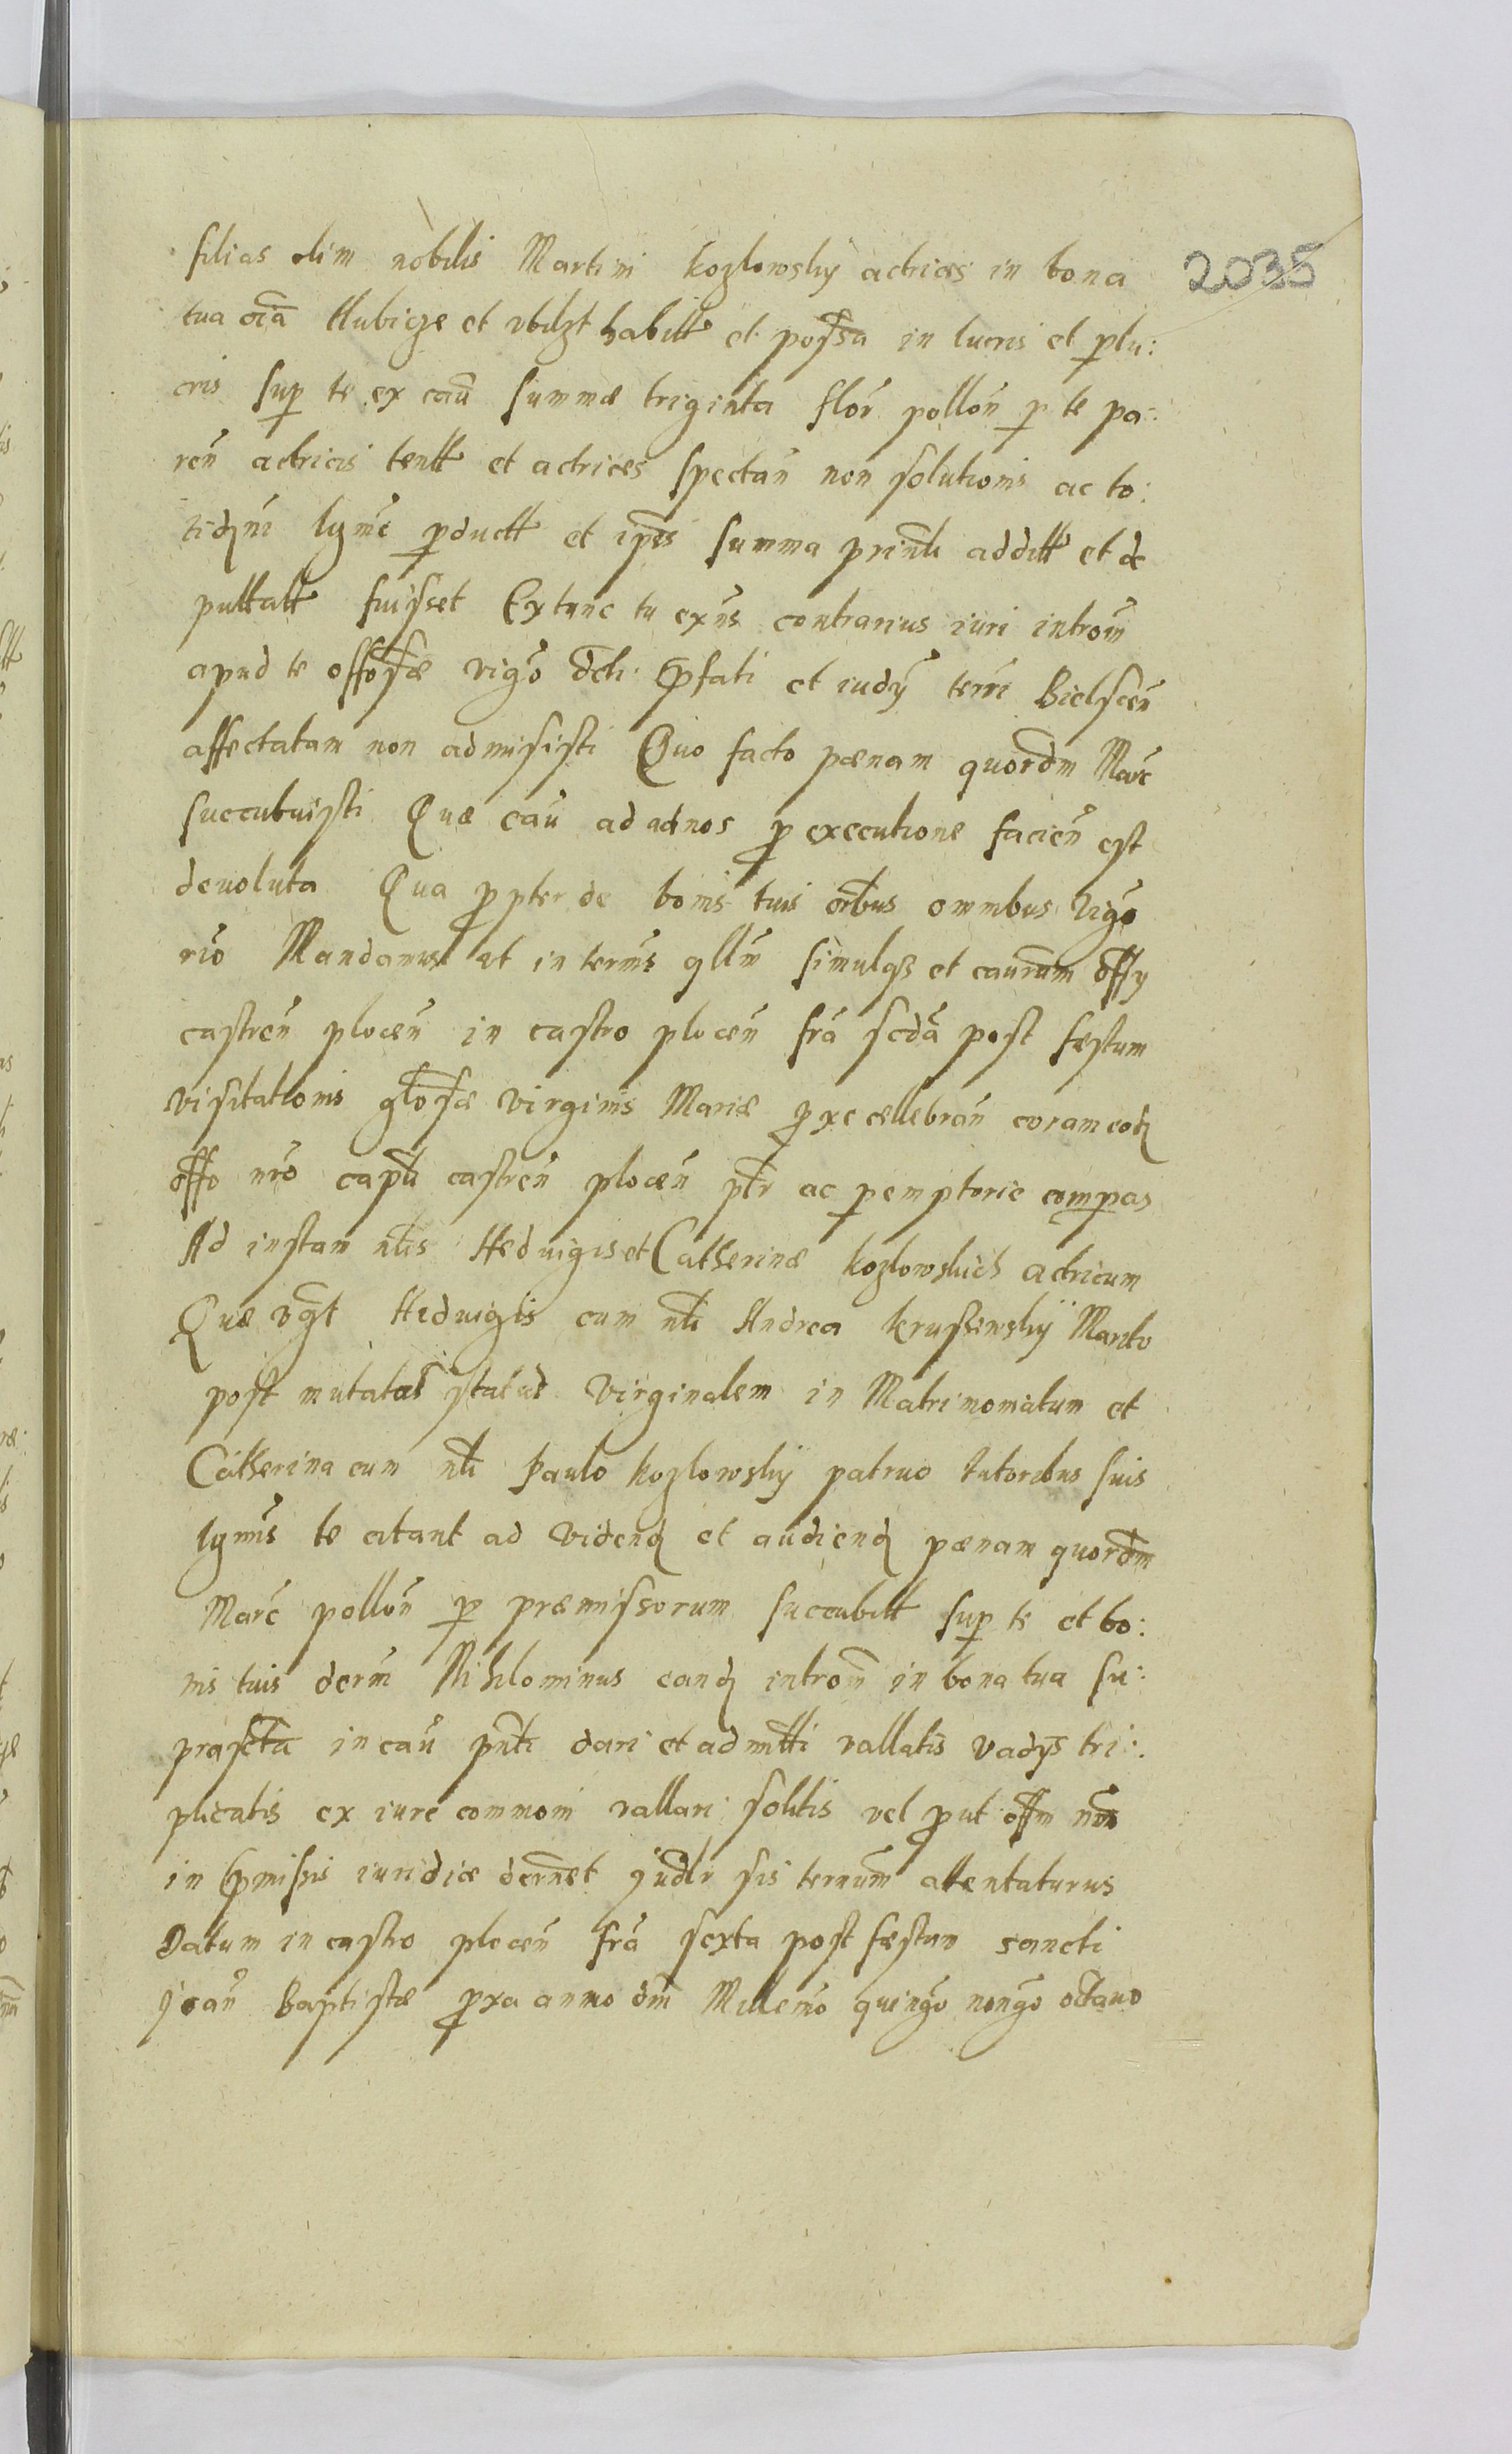 filias olim nobilis Martini Kozlowsky actrices in bona 2035
tua oia Klubicze et vbilzt habitt et possa in lucris et plu:
cris sup te ex cau summæ triginta flor pollon p te pa:
ren actricis tentt et actrices spectan non solutionis ac to:
tidni lgme pductt et ipsis summa prinli additt et de
puttatt fuisset Extunc tu exns contrarius iuri introm
apud te offosæ vigo dcti pfati et iudy terri Bielscen
affectatam non admisisti Quo facto pænam quordm Marc
succubuisti Quæ cau ad adnos p executione facien est
deuoluta Qua ppter de bonis tuis oribus omnibus vigo
rio Mandamus vt in termis qllm simulqz et caurum offy
castren plocen in castro plocen fra scda post festum
visitationis glosæ virginis Mariæ pxe cellebran coram eod
offo nro capti castren plocen ptr ac pemptorie compas
Ad instam nlis Hedwigis et Catherinæ Kozlowskich actricum
Quæ vgt Hedwigis cum nli Andrea Krussewsky Marito
post mutatus status virginalem in Matrimoniatum et
Catherina cum nli Paulo Kozlowsky patruo tutoribus suis
lgmis te citant ad videnq et audienq pænam quordm
Marc pollon p præmissorum succubitt sup te et bo:
nis tuis derni Nihilominus eanq introm in bona tua su:
prascta in cau pnti dari et admitti vallatis vadys tri:
plicatis ex iure commoni vallari solitis vel put offm nrm
in pmissis iuridice dernet Judlr sis termum attentaturus
Datum in castro plocen fra sexta post festum sancti
Joan Baptistæ pxa anno dni Millemo quingo nongo octauo